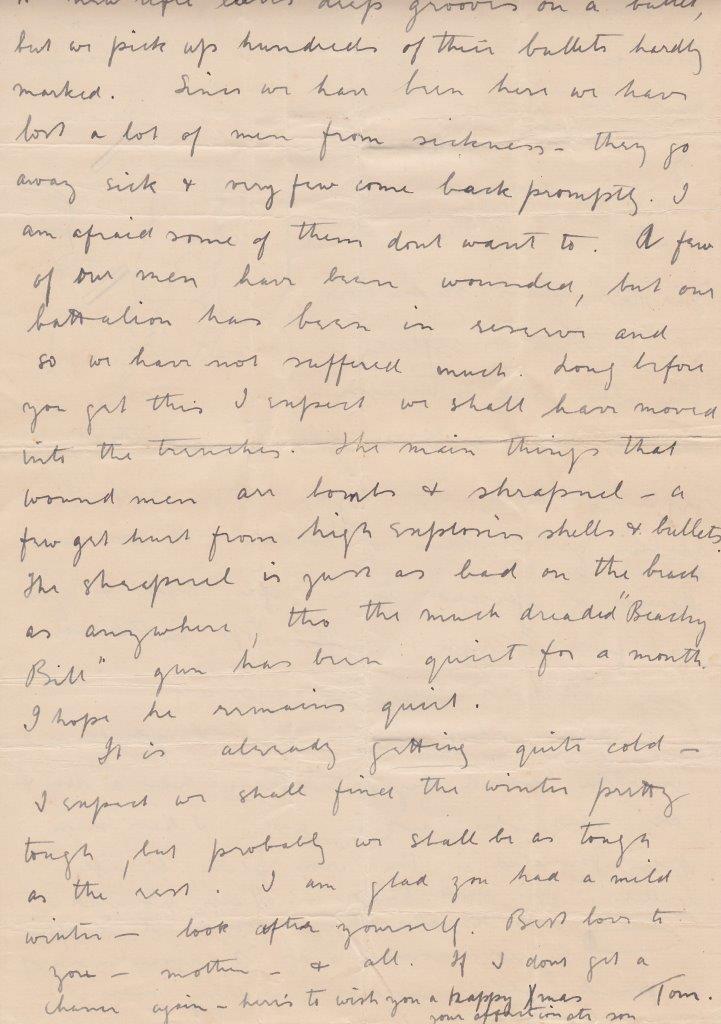 A new rifle leaves deep grooves on a bullet,
but we pick up hundreds of their bullets hardly
marked. Since we have been here we have
lost a lot of men from sickness - they go
away sick & very few come back promptly. I
am afraid some of them dont want to. A few
of our men have been wounded, but our
battalion has been in reserve and
so we have not suffered much. Long before
you get this I expect we shall have moved
into the trenches. The main things that
wound men are bombs & shrapnel - a
few get hurt from high explosive shells & bullets.
The shrapnel is just as bad on the beach
as anywhere, tho the much dreaded "Beachy
Bill" gun has been quiet for a month.
I hope he remains quiet.
It is already getting quite cold -
I expect we shall find the winter pretty
tough, but probably we shall be as tough
as the rest. I am glad you had a mild
winter - look after yourself. Best love to
you - mother - & all. If I dont get a
chance again - here's to wish you a happy Xmas Tom.
your affectionate son